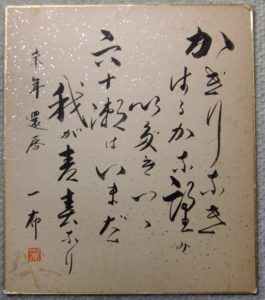 かぎりなき
はるかな謹み
いだきいつ
六十瀬はいまだ
我が青春なり
来年還暦 一布